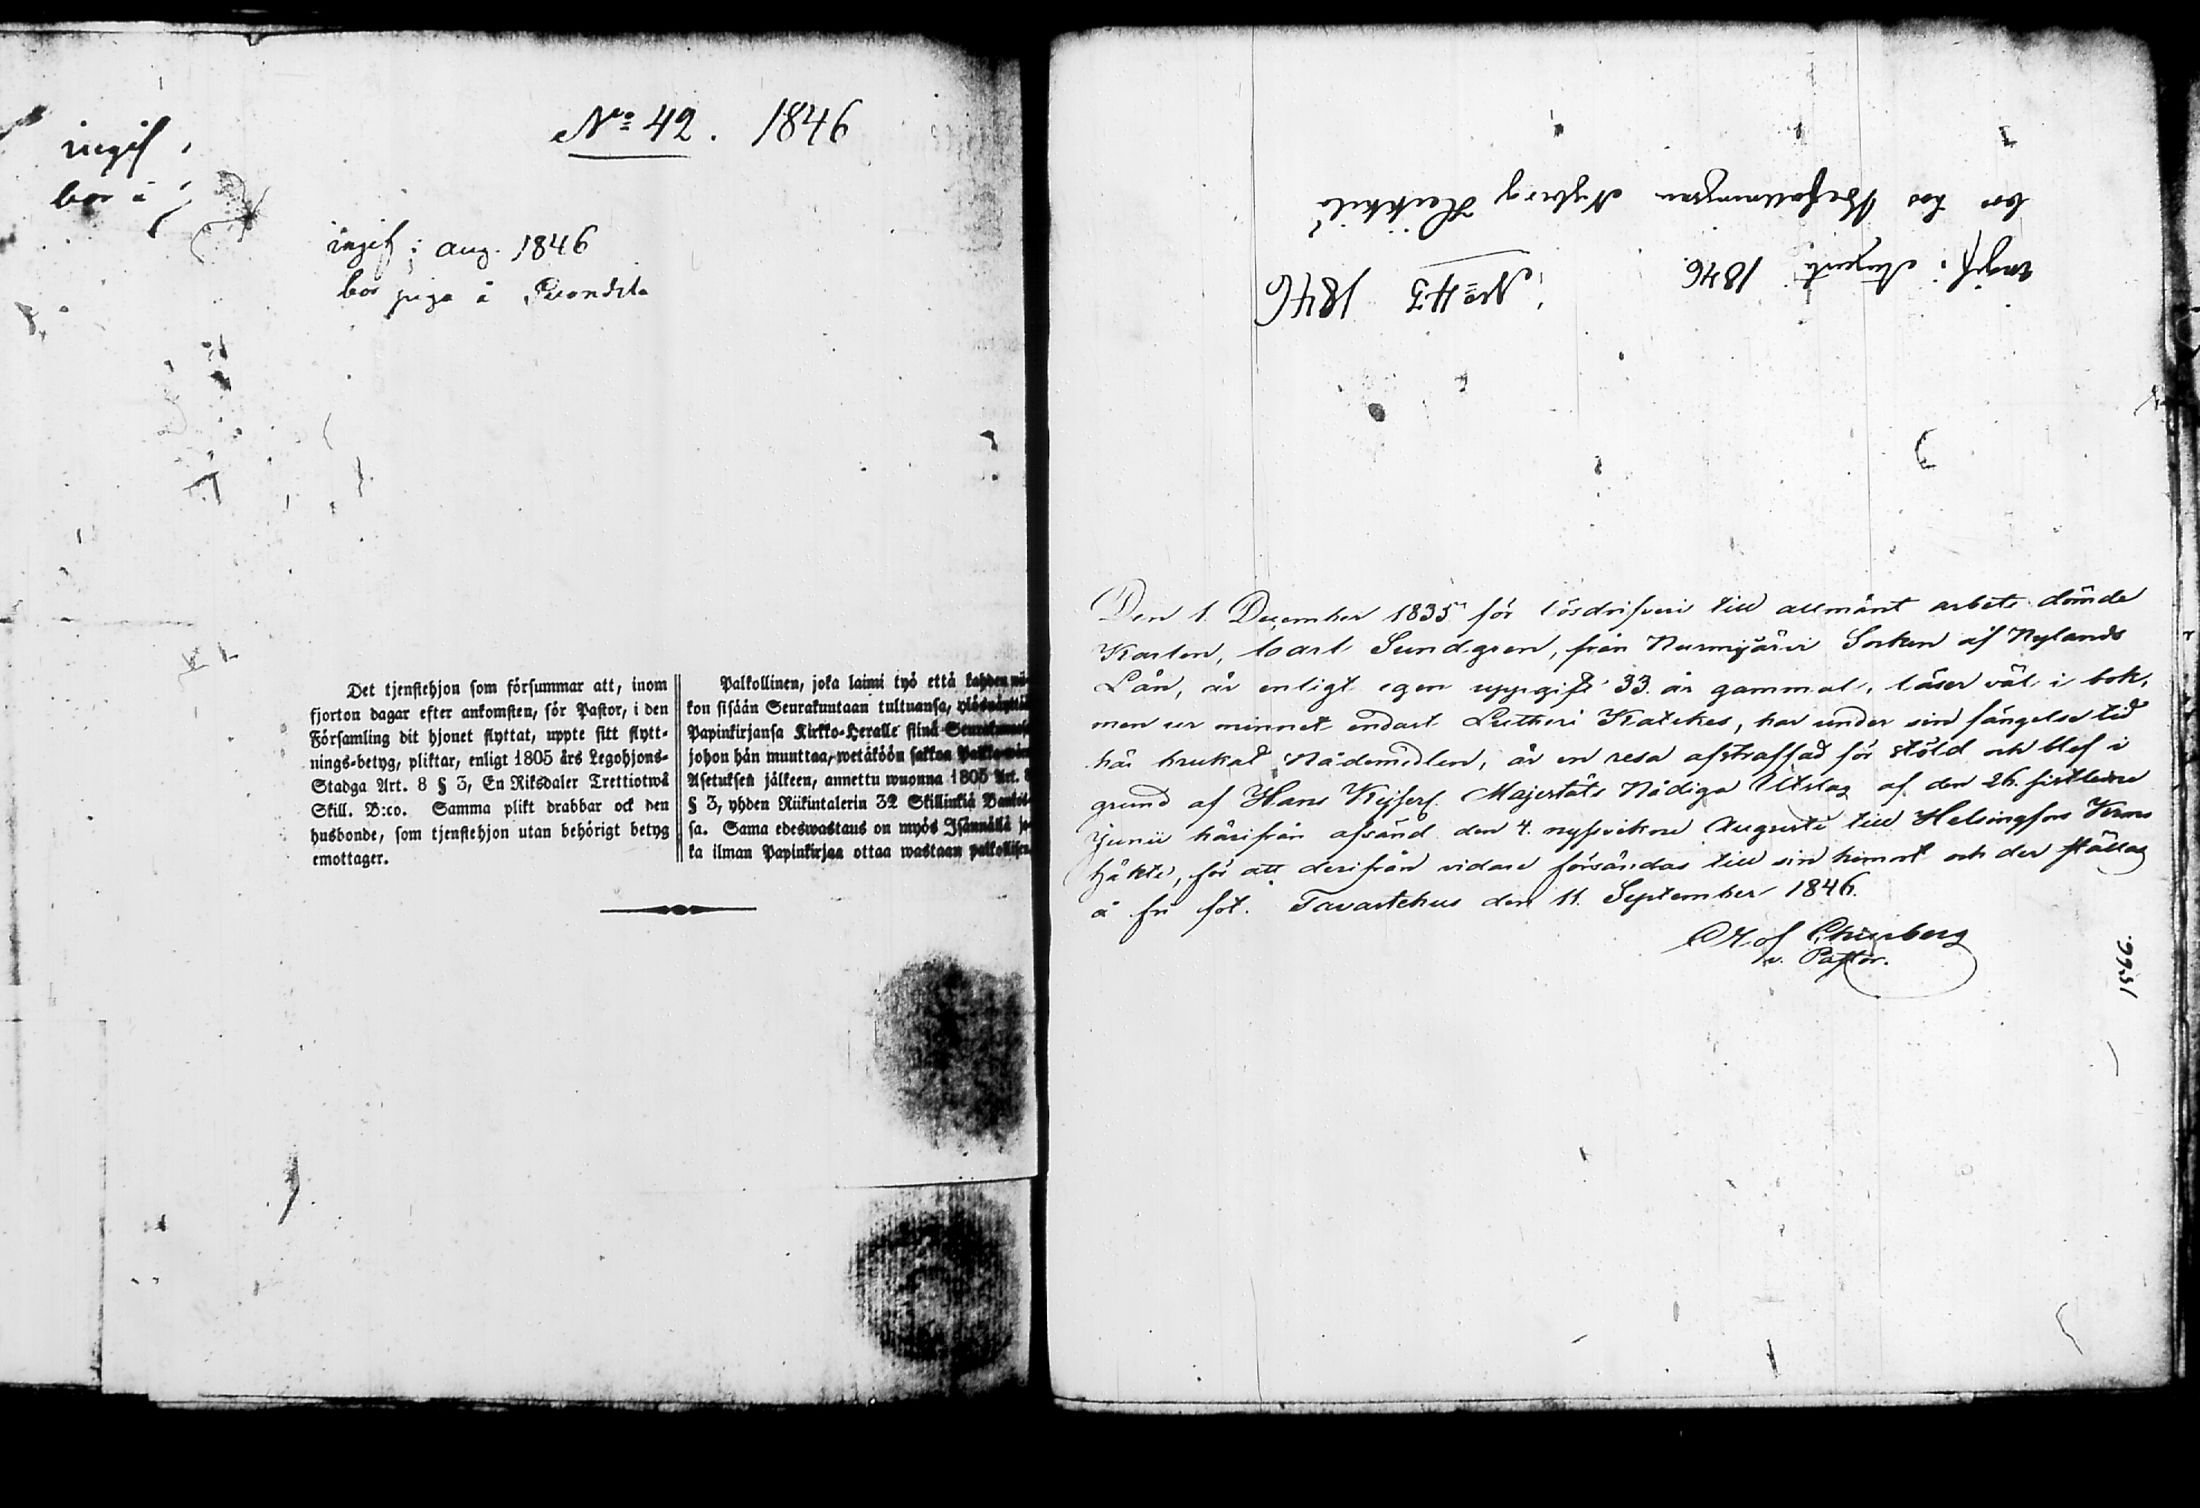 ingif
bor å
No 42. 1846
ingif: aug. 1846
bor piga å
Det tjenstehjon som försummar att, inom
fjorton dagar efter ankomsten, för Pastor, i den
Församling dit hjonet flyttat, uppte sitt flytt-
nings-betyg, pliktar, enligt 1805 års Legohjons-
Stadga Art. 8 § 3, En Riksdaler Trettiotwå
Skill. B:co. Samma plikt drabbar ock den
husbonde, som tjenstehjon utan behörigt betyg
emottager.
Palkollinen, joka laimi työ että kahden wii-
kon sisään Seurakuntaan tultuansa,
Papinkirjansa Kirkko-Heralle siinä
johon hän muuttaa, wetäköön sakkoa
Asetuksen jälkeen, annettu wuonna 1805 Art. 8
§ 3, yhden Riikintalerin 32 Skillinkiä
sa. Sama edeswastaus on myös Isännällä jo-
ka ilman Papinkirjaa ottaa wastaan palkollisen
No 43 1846
ingif: Augusti 1846.
bor hos Nyberg Heikkilä
Den 1. December 1835 för lösdrifveri till allmänt arbete dömde
Karlen, Carl Sundgren, från Nurmijärvi Socken af Nylands
Län, är enligt egen uppgift 33. år gammal, läser väl i bok,
men ur minnet endast Lutheri Katekes, har under sin fängelse tid
här brukat Nådemedlen, är en resa afstraffad för stöld och blef i
grund af Hans Kejserl. Majestäts Nådiga Utslag af den 26. sistledne
Junii härifrån afsänd den 4. nyssvikne Augusti till Helsingfors Krono
häkte, för att derifrån vidare försändas till sin hemort och der ställas
å fri fot. Tavastehus den 11. September 1846.
v. Pastor.